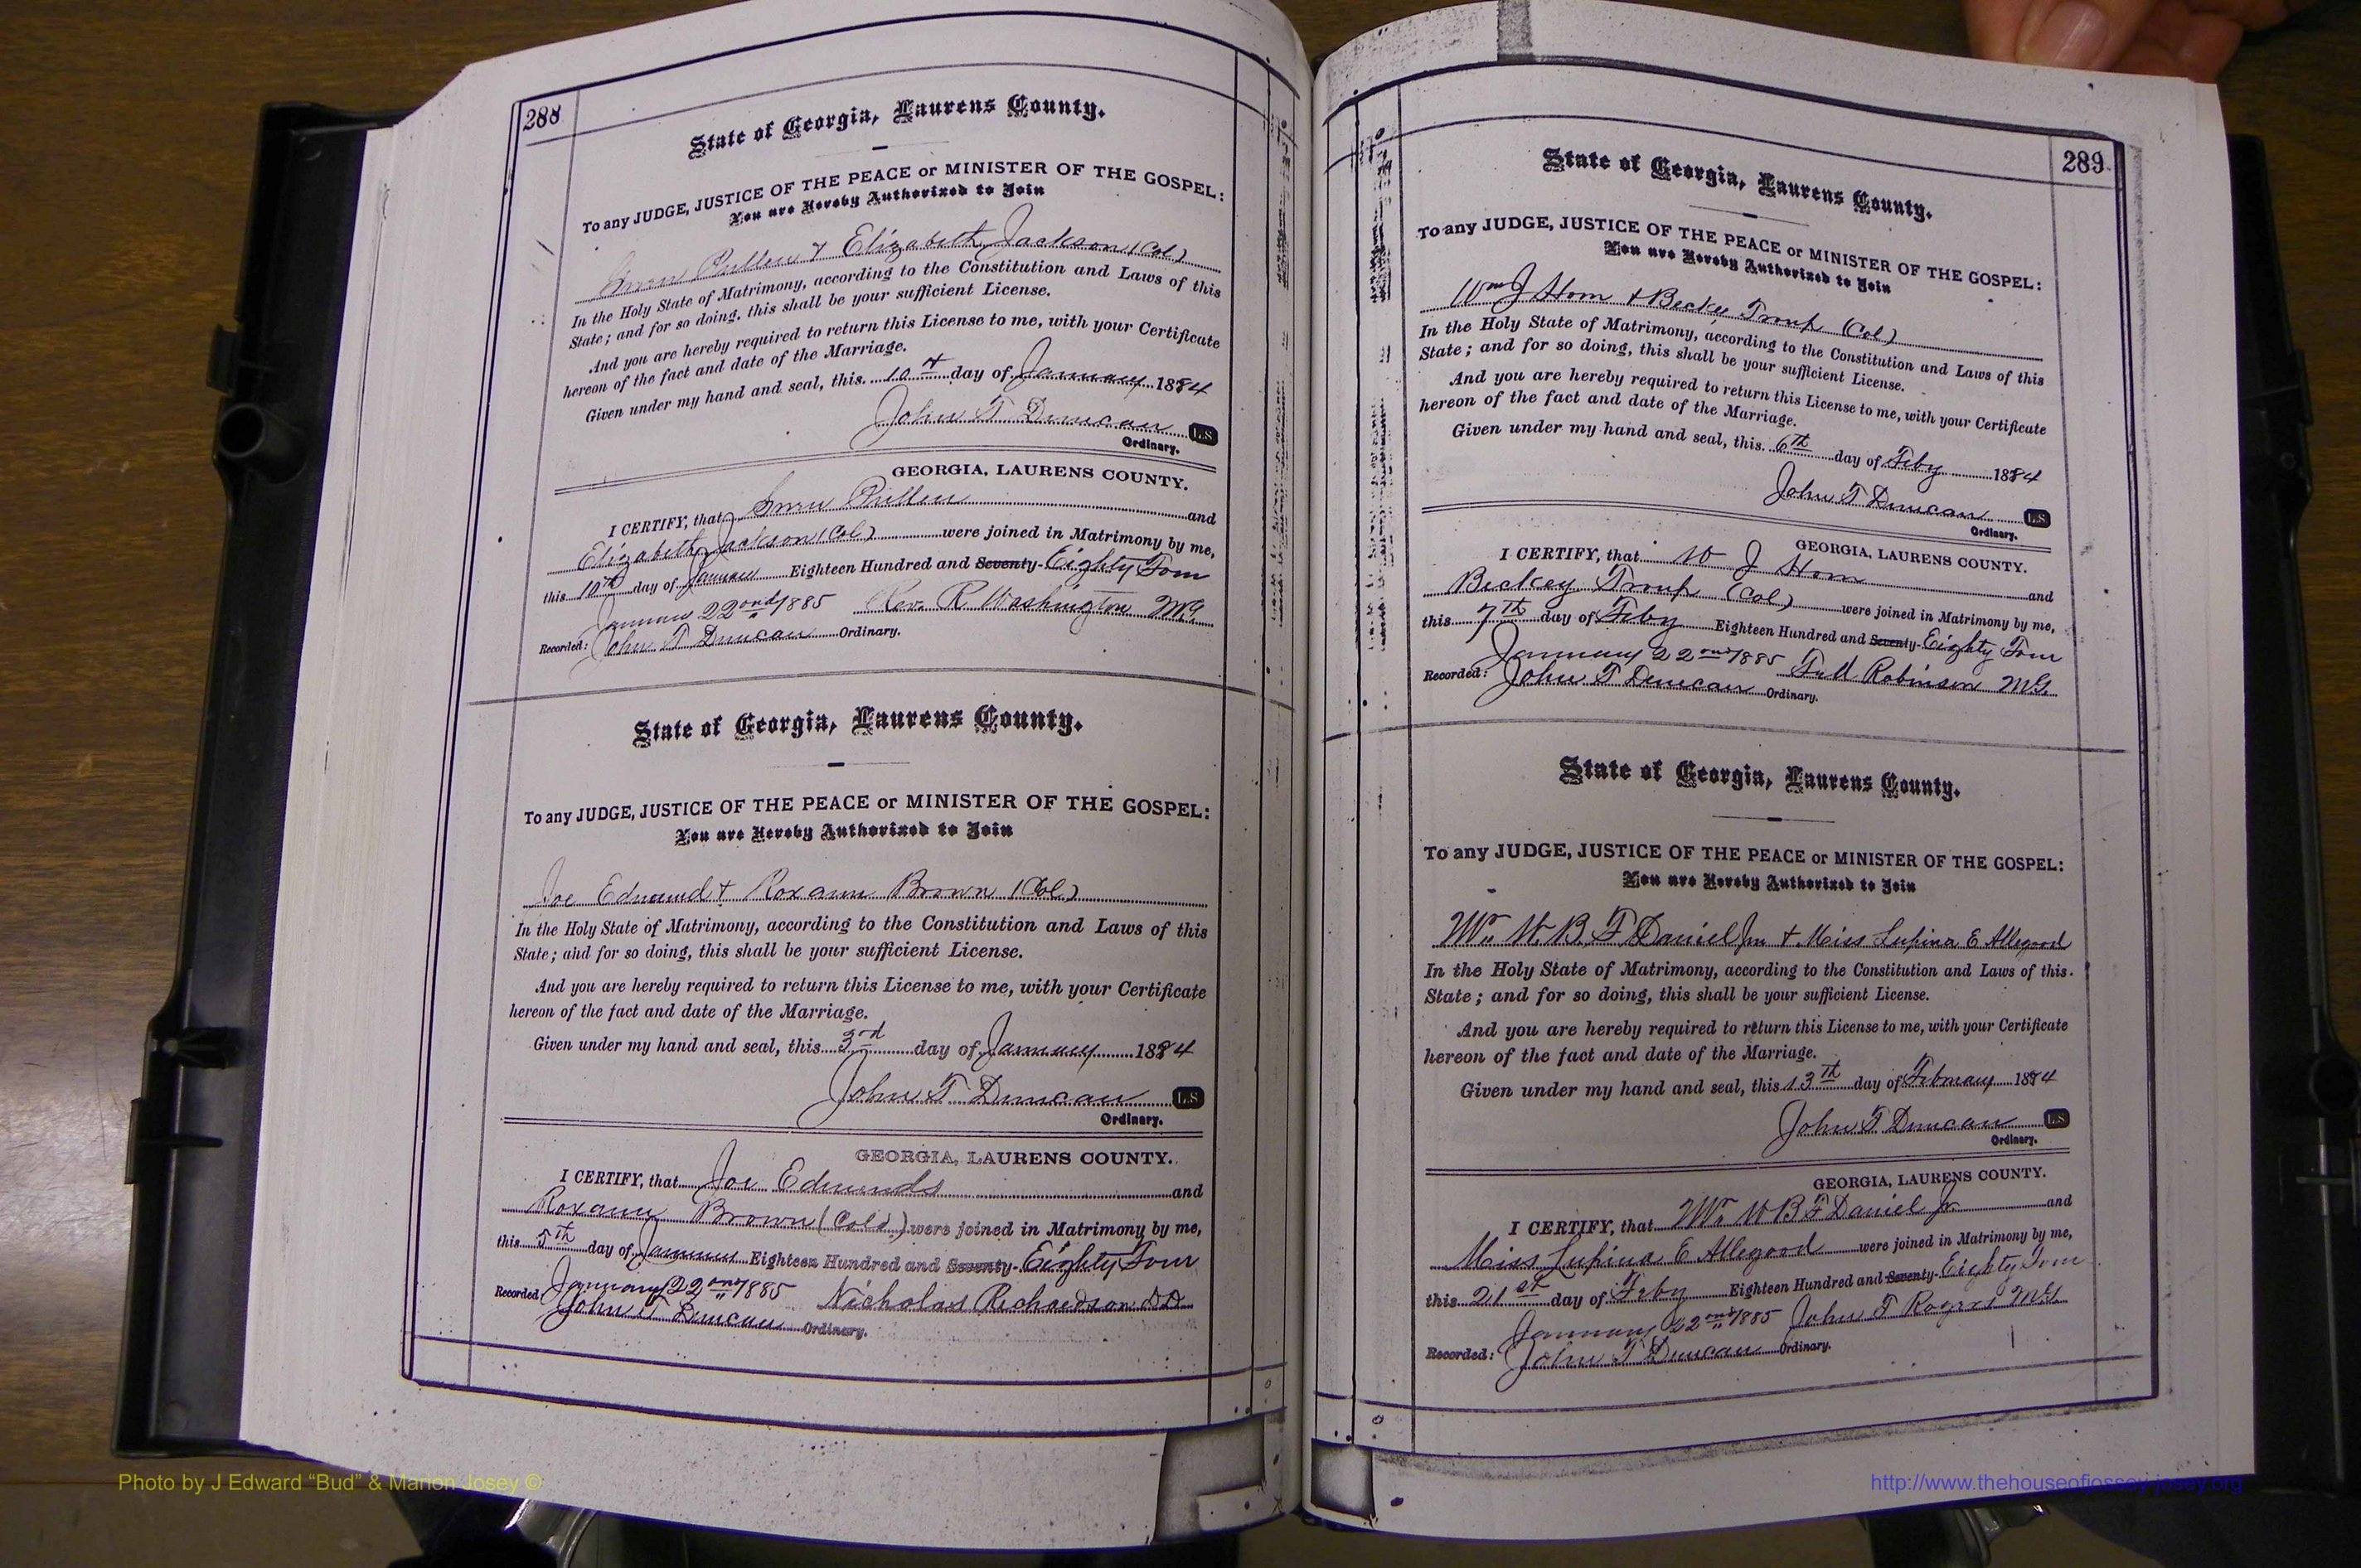 288
State of Georgia, Laurens County.
To any JUDGE, JUSTICE OF THE PEACE or MINISTER OF THE GOSPEL:
You are Hereby Authorized to Join
Pullen & Elizabeth Jackson (Col)
In the Holy State of Matrimony, according to the Constitution and Laws of this
State; and for so doing, this shall be your sufficient License.
And you are hereby required to return this License to me, with your Certificate
hereon of the fact and date of the Marriage.
Given under my hand and seal, this 10th day of January 1884
John T Duncan L.S
Ordinary.
GEORGIA, LAURENS COUNTY.
I CERTIFY, that Pullen and
Elizabeth Jackson (Col) were joined in Matrimony by me,
this 10th day of January Eighteen Hundred and Seventy- Eighty Four
January 22ond 1885 Rev. R Washington MG
Recorded: John T Duncan Ordinary.
State of Georgia, Laurens County.
To any JUDGE, JUSTICE OF THE PEACE or MINISTER OF THE GOSPEL:
You are Hereby Authorized to Join
Joe Edmund & Roxann Brown (Col)
In the Holy State of Matrimony, according to the Constitution and Laws of this
State; and for so doing, this shall be your sufficient License.
And you are hereby required to return this License to me, with your Certificate
hereon of the fact and date of the Marriage.
Given under my hand and seal, this 3rd day of January 1884
John T Duncan L.S
Ordinary.
GEORGIA, LAURENS COUNTY.
I CERTIFY, that Joe Edmunds and
Roxann Brown (Cold) were joined in Matrimony by me,
this 5th day of January Eighteen Hundred and Seventy- Eighty Four
January 22ond 1885 Nicholas Richardson DD
Recorded: John T Duncan Ordinary.
289
State of Georgia, Laurens County.
To any JUDGE, JUSTICE OF THE PEACE or MINISTER OF THE GOSPEL:
You are Hereby Authorized to Join
Wm J Horn & Becky Troup (Col)
In the Holy State of Matrimony, according to the Constitution and Laws of this
State; and for so doing, this shall be your sufficient License.
And you are hereby required to return this License to me, with your Certificate
hereon of the fact and date of the Marriage.
Given under my hand and seal, this 6th day of Feby 1884
John T Duncan L.S
Ordinary.
GEORGIA, LAURENS COUNTY.
I CERTIFY, that W J Horn and
Beckey Troup (Col) were joined in Matrimony by me,
this 7th day of Feby Eighteen Hundred and Seventy- Eighty Four
January 22ond 1885 Robinson MG
Recorded: John T Duncan Ordinary.
State of Georgia, Laurens County.
To any JUDGE, JUSTICE OF THE PEACE or MINISTER OF THE GOSPEL:
You are Hereby Authorized to Join
Mr. W. B. F Daniel Jr & Miss Lupina E Allegood
In the Holy State of Matrimony, according to the Constitution and Laws of this
State; and for so doing, this shall be your sufficient License.
And you are hereby required to return this License to me, with your Certificate
hereon of the fact and date of the Marriage.
Given under my hand and seal, this 13th day of February 1884
John T Duncan L.S
Ordinary.
GEORGIA, LAURENS COUNTY.
I CERTIFY, that Mr. W B F Daniel Jr. and
Miss Lupina E Allegood were joined in Matrimony by me,
this 21st day of Feby Eighteen Hundred and Seventy- Eighty Four
January 22ond 1885 John T Rogers MG
Recorded: John T Duncan Ordinary.
Photo by J Edward “Bud” & Marion Josey ©
http://www.thehouseofjossey-josey.org